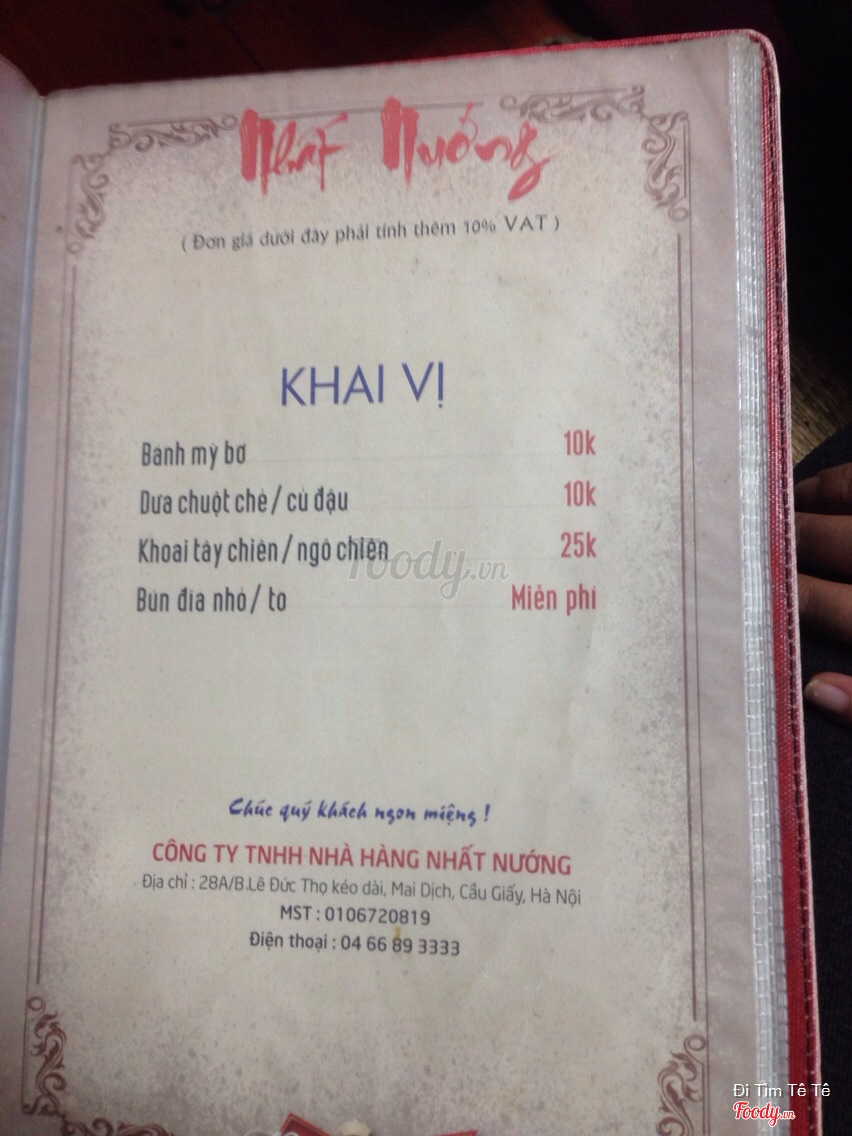 Nhất Nướng
( Đơn giá dưới đây phải tính thêm 10% VAT )
KHAI VỊ
Bánh mỳ bơ 10k
Dưa chuột chẻ / củ đậu 10k
Khoai tây chiên / ngô chiên 25k
Bún đĩa nhỏ / to Miễn phí
foody.vn
Chúc quý khách ngon miệng !
CÔNG TY TNHH NHÀ HÀNG NHẤT NƯỚNG
Địa chỉ : 28A/B.Lê Đức Thọ kéo dài, Mai Dịch, Cầu Giấy, Hà Nội
MST : 0106720819
Điện thoại : 04 66 89 3333
Đi Tìm Tê Tê
Foody.vn